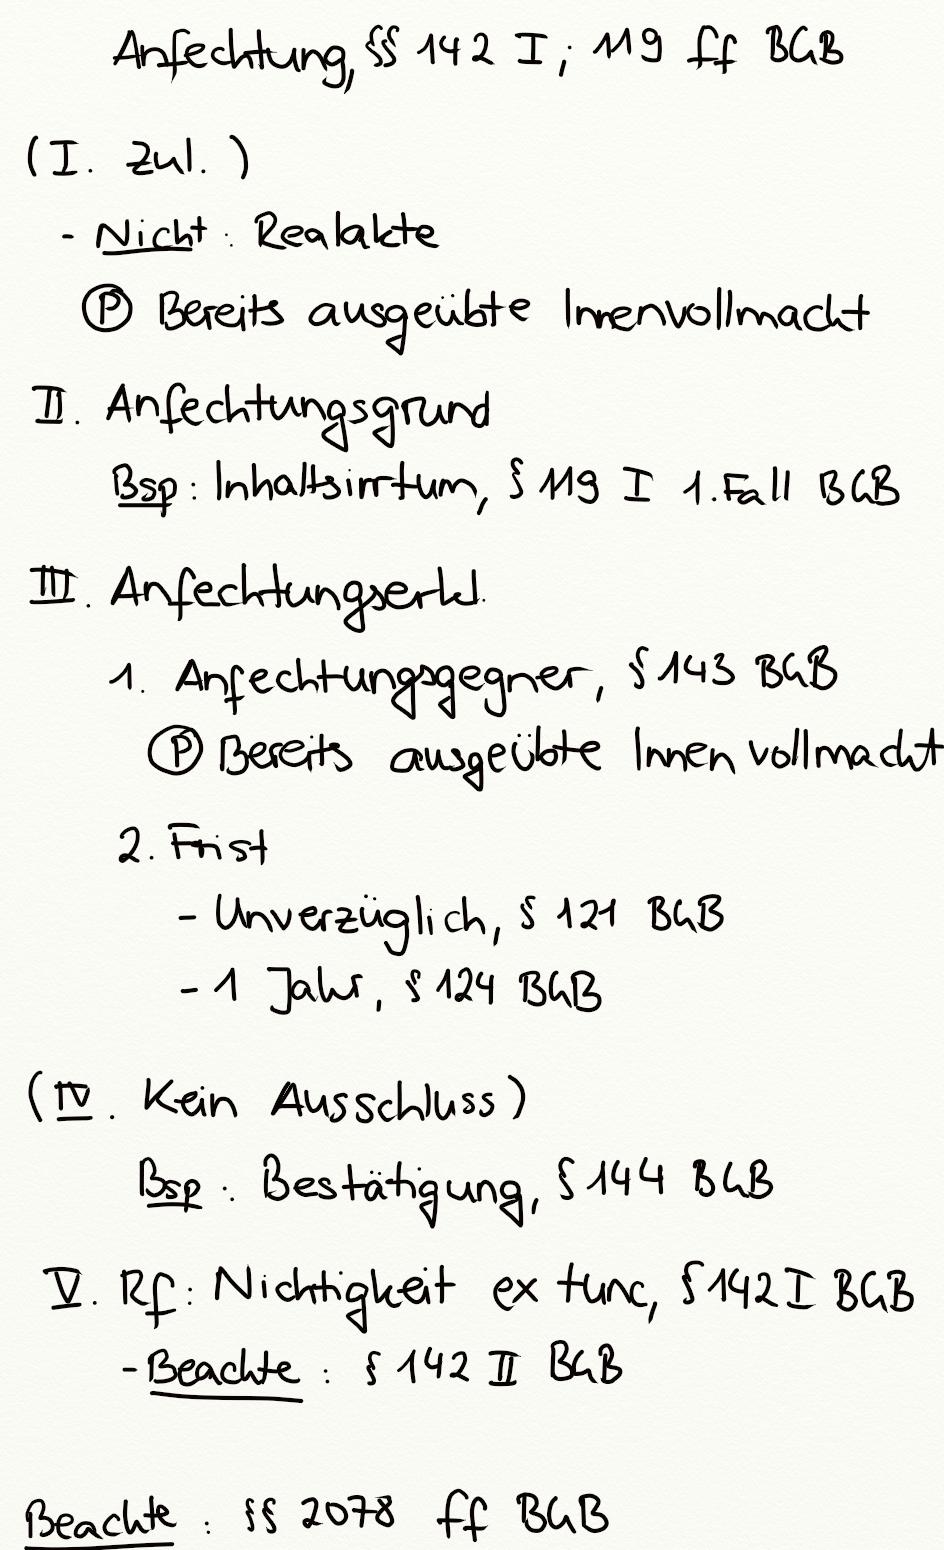 Anfechtung, §§ 142 I; 119 ff BGB
(I. Zul.)
- Nicht: Realakte
Ⓟ Bereits ausgeübte Innenvollmacht
II. Anfechtungsgrund
Bsp: Inhaltsirrtum, § 119 I 1. Fall BGB
III. Anfechtungserkl.
1. Anfechtungsgegner, § 143 BGB
Ⓟ Bereits ausgeübte Innenvollmacht
2. Frist
- Unverzüglich, § 121 BGB
- 1 Jahr, § 124 BGB
(IV. Kein Ausschluss)
Bsp: Bestätigung, § 144 BGB
V. Rf: Nichtigkeit ex tunc, § 142 I BGB
- Beachte: § 142 II BGB
Beachte: §§ 2078 ff BGB